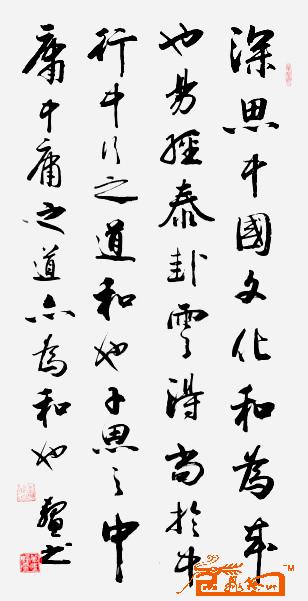 深思中國文化和為
也易經泰卦雲得尚於中
行中行之道和也子思之中
庸中庸之道亦為和也